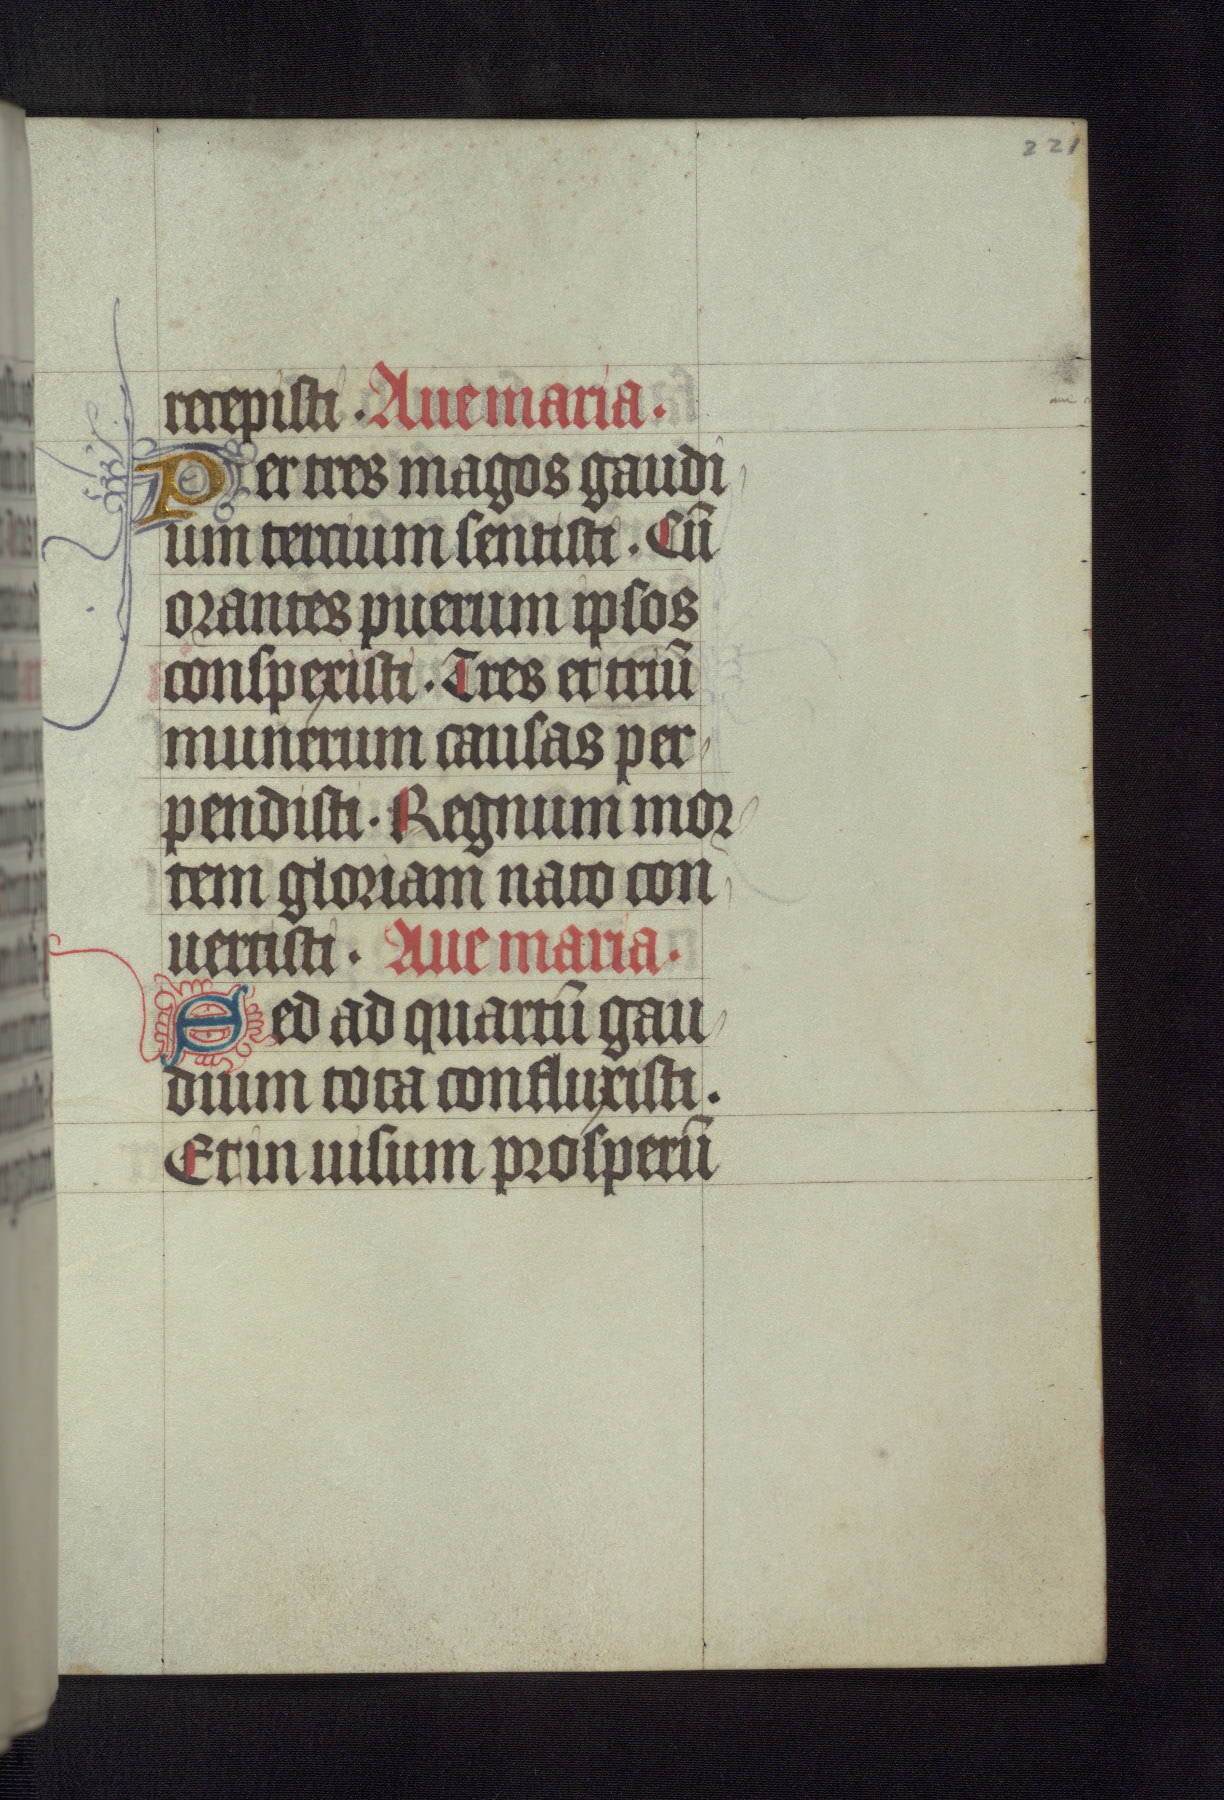 221
recepisti. Aue maria.
Per tres magos gaudi
um tercium sentisti. Cū
orantes puerum ipsos
conspexisti. Tres et triū
munerum causas per
pendisti. Regnum mor
tem gloriam nato con
uertisti. Aue maria.
Sed ad quartū gau
dium tota confluxisti.
Et in uisum prosperū